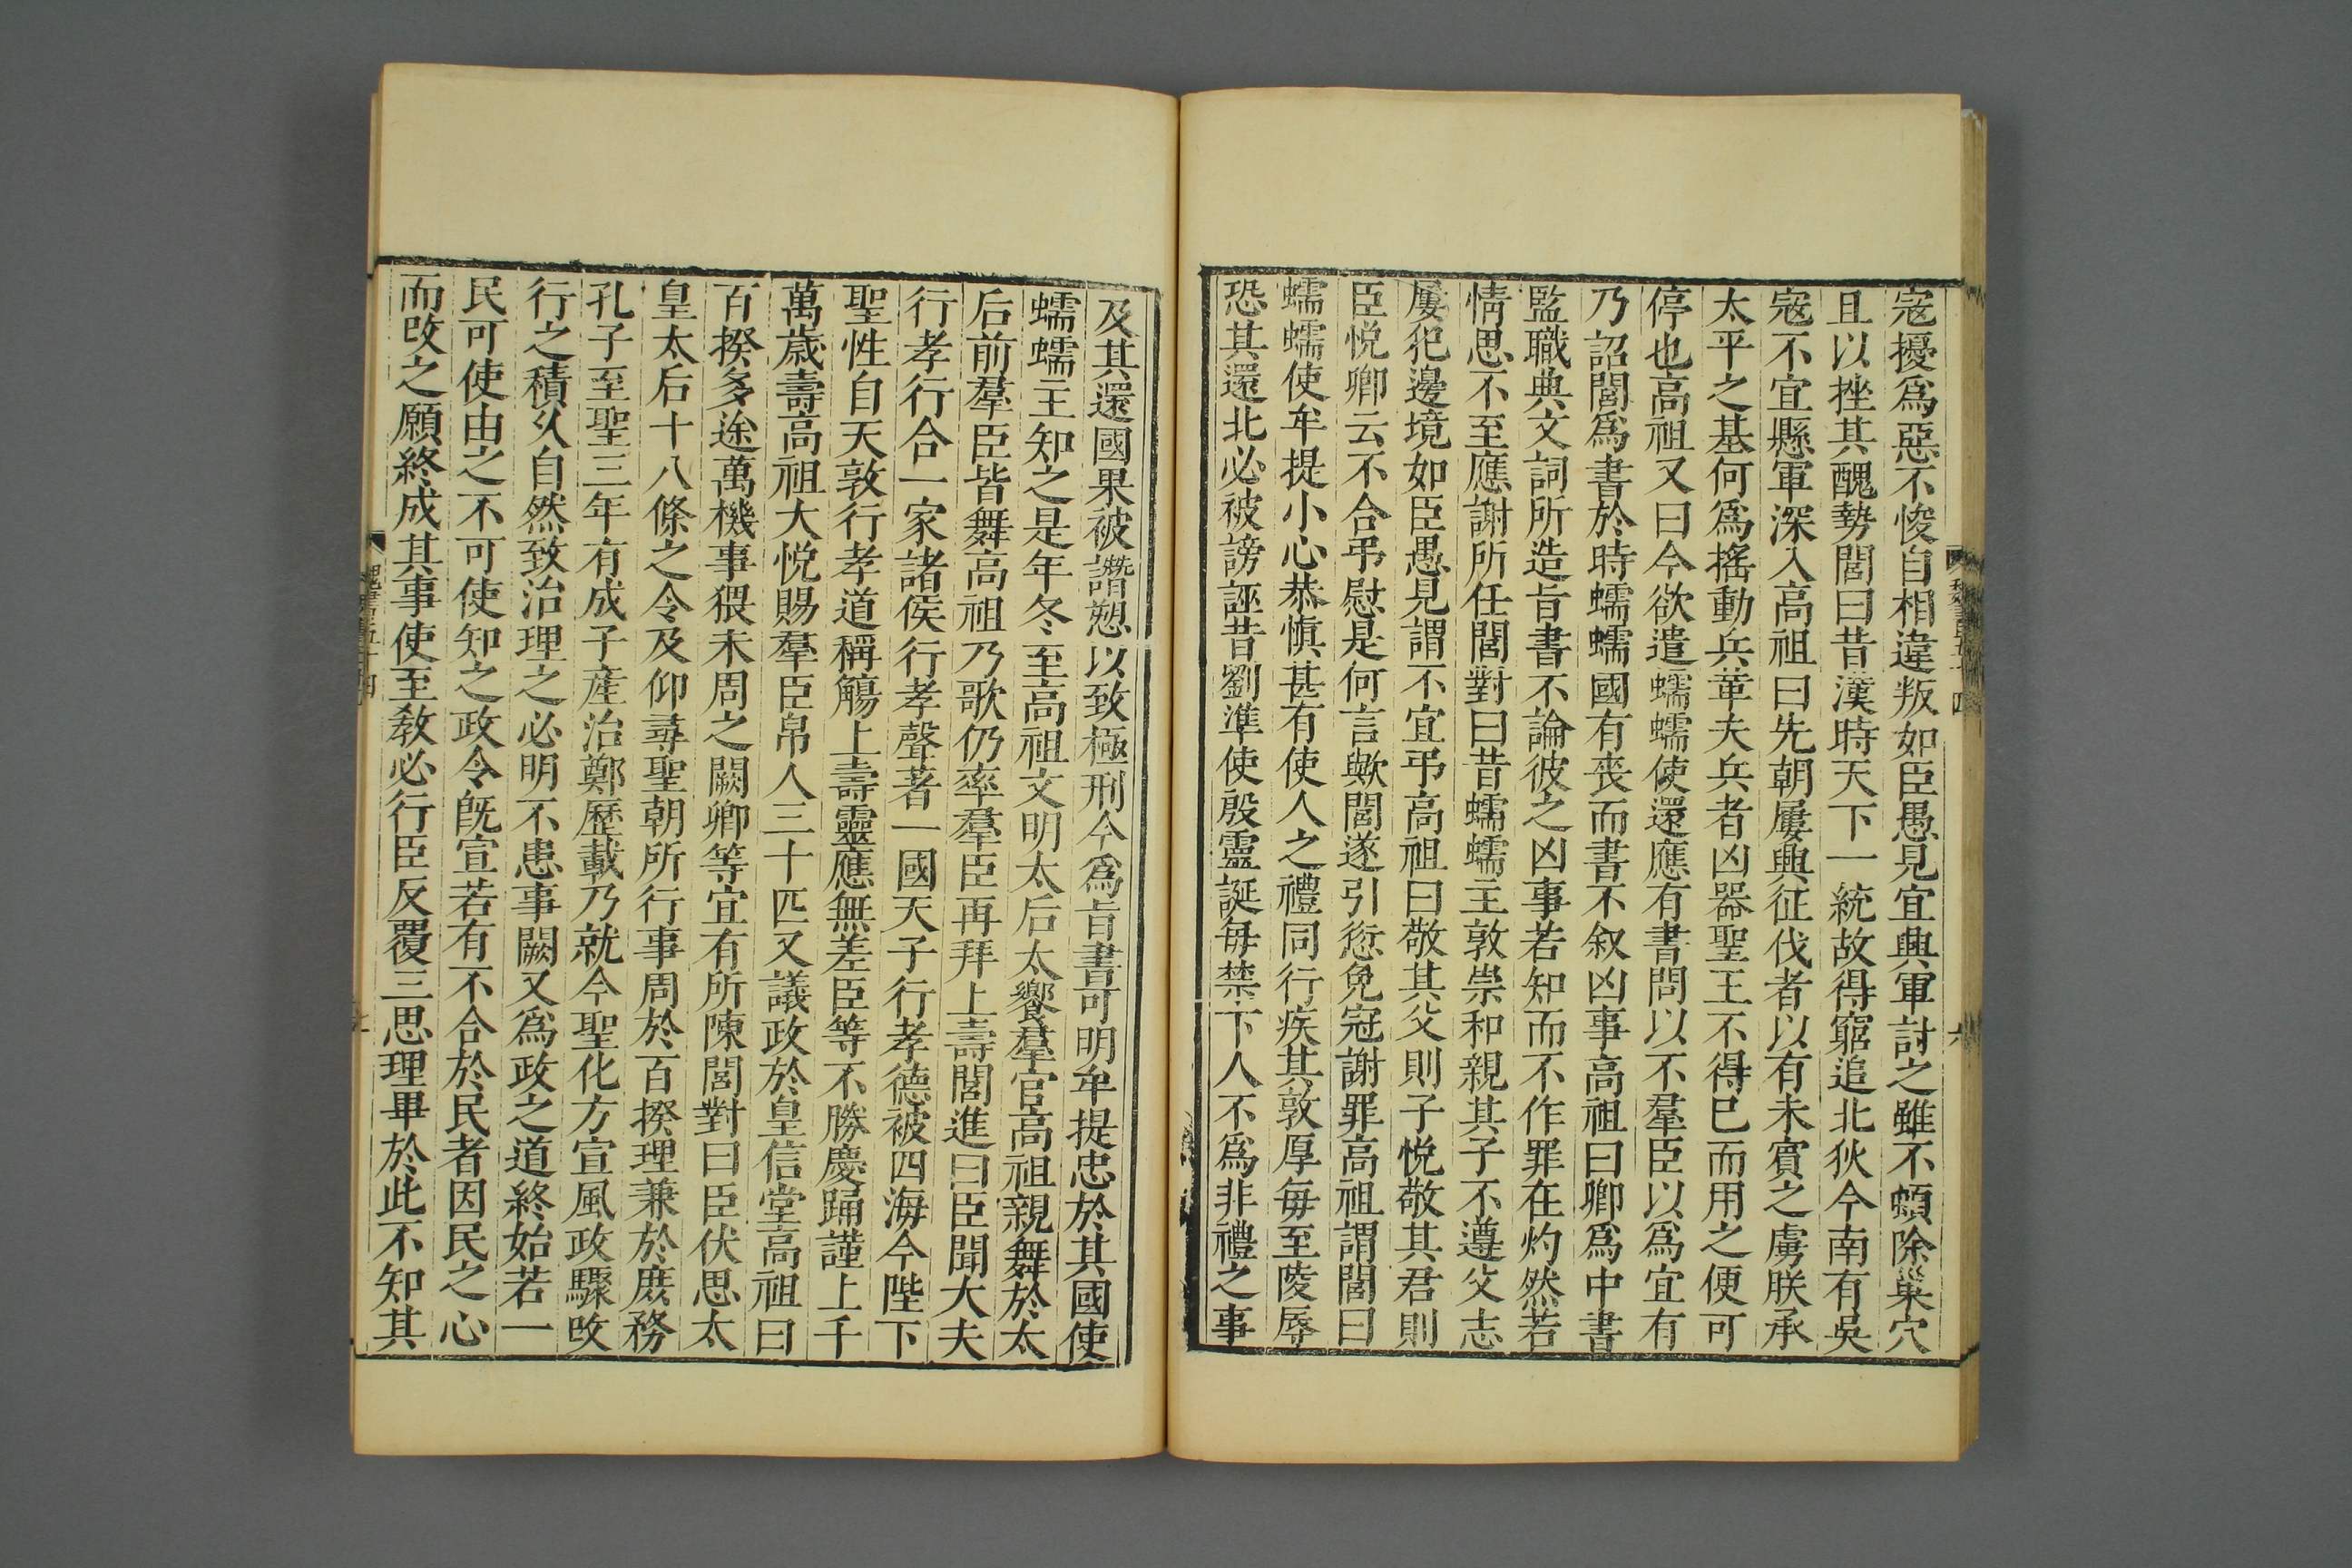 寇擾爲惡不悛自相違叛如臣愚見宜興軍討之雖不頓除巢穴
且以挫其醜勢閭曰昔漢時天下一統故得窮追北狄今南有吳
寇不宜懸軍深入高祖曰先朝屢興征伐者以有未賓之虜朕承
太平之基何爲搖動兵革夫兵者凶器聖王不得已而用之便可
停也高祖又曰今欲遣蠕蠕使還應有書問以不羣臣以爲宜有
乃詔閭爲書於時蠕蠕國有喪而書不叙凶事高祖曰卿爲中書
監職典文詞所造旨書不論彼之凶事若知而不作罪在灼然若
情思不至應謝所任閭對曰昔蠕蠕主敦崇和親其子不遵父志
屢犯邊境如臣愚見謂不宜弔高祖曰敬其父則子悅敬其君則
臣悅卿云不合弔慰是何言歟閭遂引愆免冠謝罪高祖謂閭曰
蠕蠕使牟提小心恭愼甚有使人之禮同行疾其敦厚每至陵辱
恐其還北必被謗誣昔劉準使殷靈誕每禁下人不爲非禮之事
及其還國果被譖愬以致極刑今爲旨書可明牟提忠於其國使
蠕蠕主知之是年冬至高祖文明太后太饗羣官高祖親舞於太
后前羣臣皆舞高祖乃歌仍率羣臣再拜上壽閭進曰臣聞大夫
行孝行合一家諸侯行孝聲著一國天子行孝德被四海今陛下
聖性自天敦行孝道稱觴上壽靈應無差臣等不勝慶踊謹上千
萬歲壽高祖大悅賜羣臣帛人三十匹又議政於皇信堂高祖曰
百揆多途萬機事猥未周之闕卿等宜有所陳閭對曰臣伏思太
皇太后十八條之令及仰尋聖朝所行事周於百揆理兼於庶務
孔子至聖三年有成子產治鄭歷載乃就今聖化方宣風政驟改
行之積久自然致治理之必明不患事闕又爲政之道終始若一
民可使由之不可使知之政令旣宣若有不合於民者因民之心
而改之願終成其事使至敎必行臣反覆三思理畢於此不知其